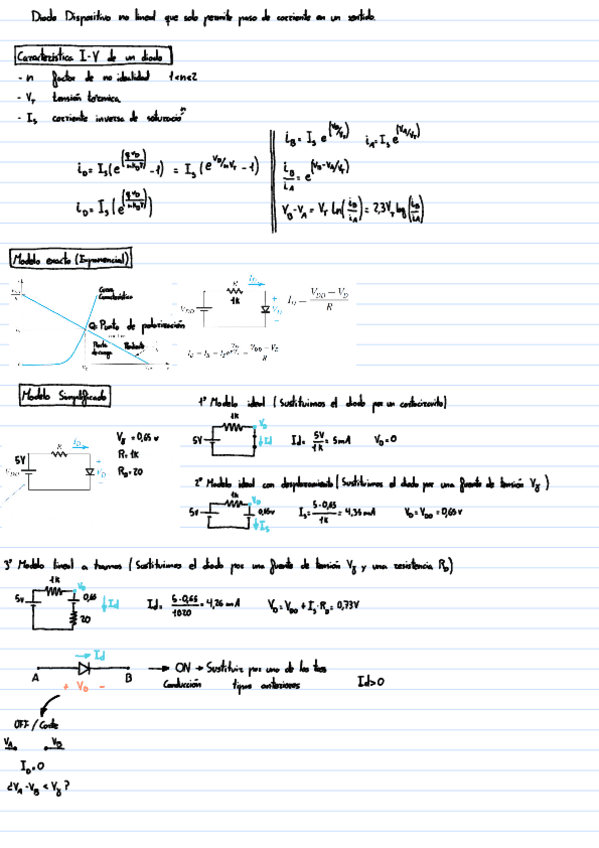 Diodo Dispositivo no lineal que solo permite paso de corriente en un sentido.
Característica I-V de un diodo
- n factor de no idealidad 1<n<2
- V_T tensión térmica
- I_s corriente inversa de saturación
i_D = I_s(e^(q v_D / n k_B T) - 1) = I_s(e^(V_D/nV_T) - 1)
i_D = I_s(e^(q v_D / n k_B T))
i_B = I_s e^(V_B/V_T) i_A = I_s e^(V_A/V_T)
i_B/i_A = e^(V_B-V_A/V_T)
V_B - V_A = V_T ln(i_B/i_A) = 2,3V_T log(i_B/i_A)
Modelo exacto (Exponencial)
Curva
Característica
Q: Punto de polarización
Recta
de carga
Pendiente
V_DD
R
1k
I_D
+
V_D
-
I_D = (V_DD - V_D)/R
Modelo Simplificado
5V
V_DD
R
I_D
+
V_D
-
V_γ = 0,65 v
R = 1k
R_D = 20
1º Modelo ideal (Sustituimos el diodo por un cortocircuito)
1k
5V
V_D
Id
Id = 5V/1k = 5mA V_D = 0
2º Modelo ideal con desplazamiento (Sustituimos el diodo por una fuente de tensión V_γ)
1k
5v
V_D
0,65v
I_s
I_s = 5-0,65/1k = 4,35 mA V_D = V_DO = 0,65v
3º Modelo lineal a tramos (Sustituimos el diodo por una fuente de tensión V_γ y una resistencia R_D)
1k
5v
V_D
0,65
20
Id
Id = 5-0,65/1020 = 4,26 mA V_D = V_DO + I_s·R_D = 0,73V
Id
A B
+ V_D -
ON → Sustituir por uno de los tres
Conducción tipos anteriores Id>0
OFF / Corte
V_A V_B
I_D = 0
¿V_A - V_B < V_γ?